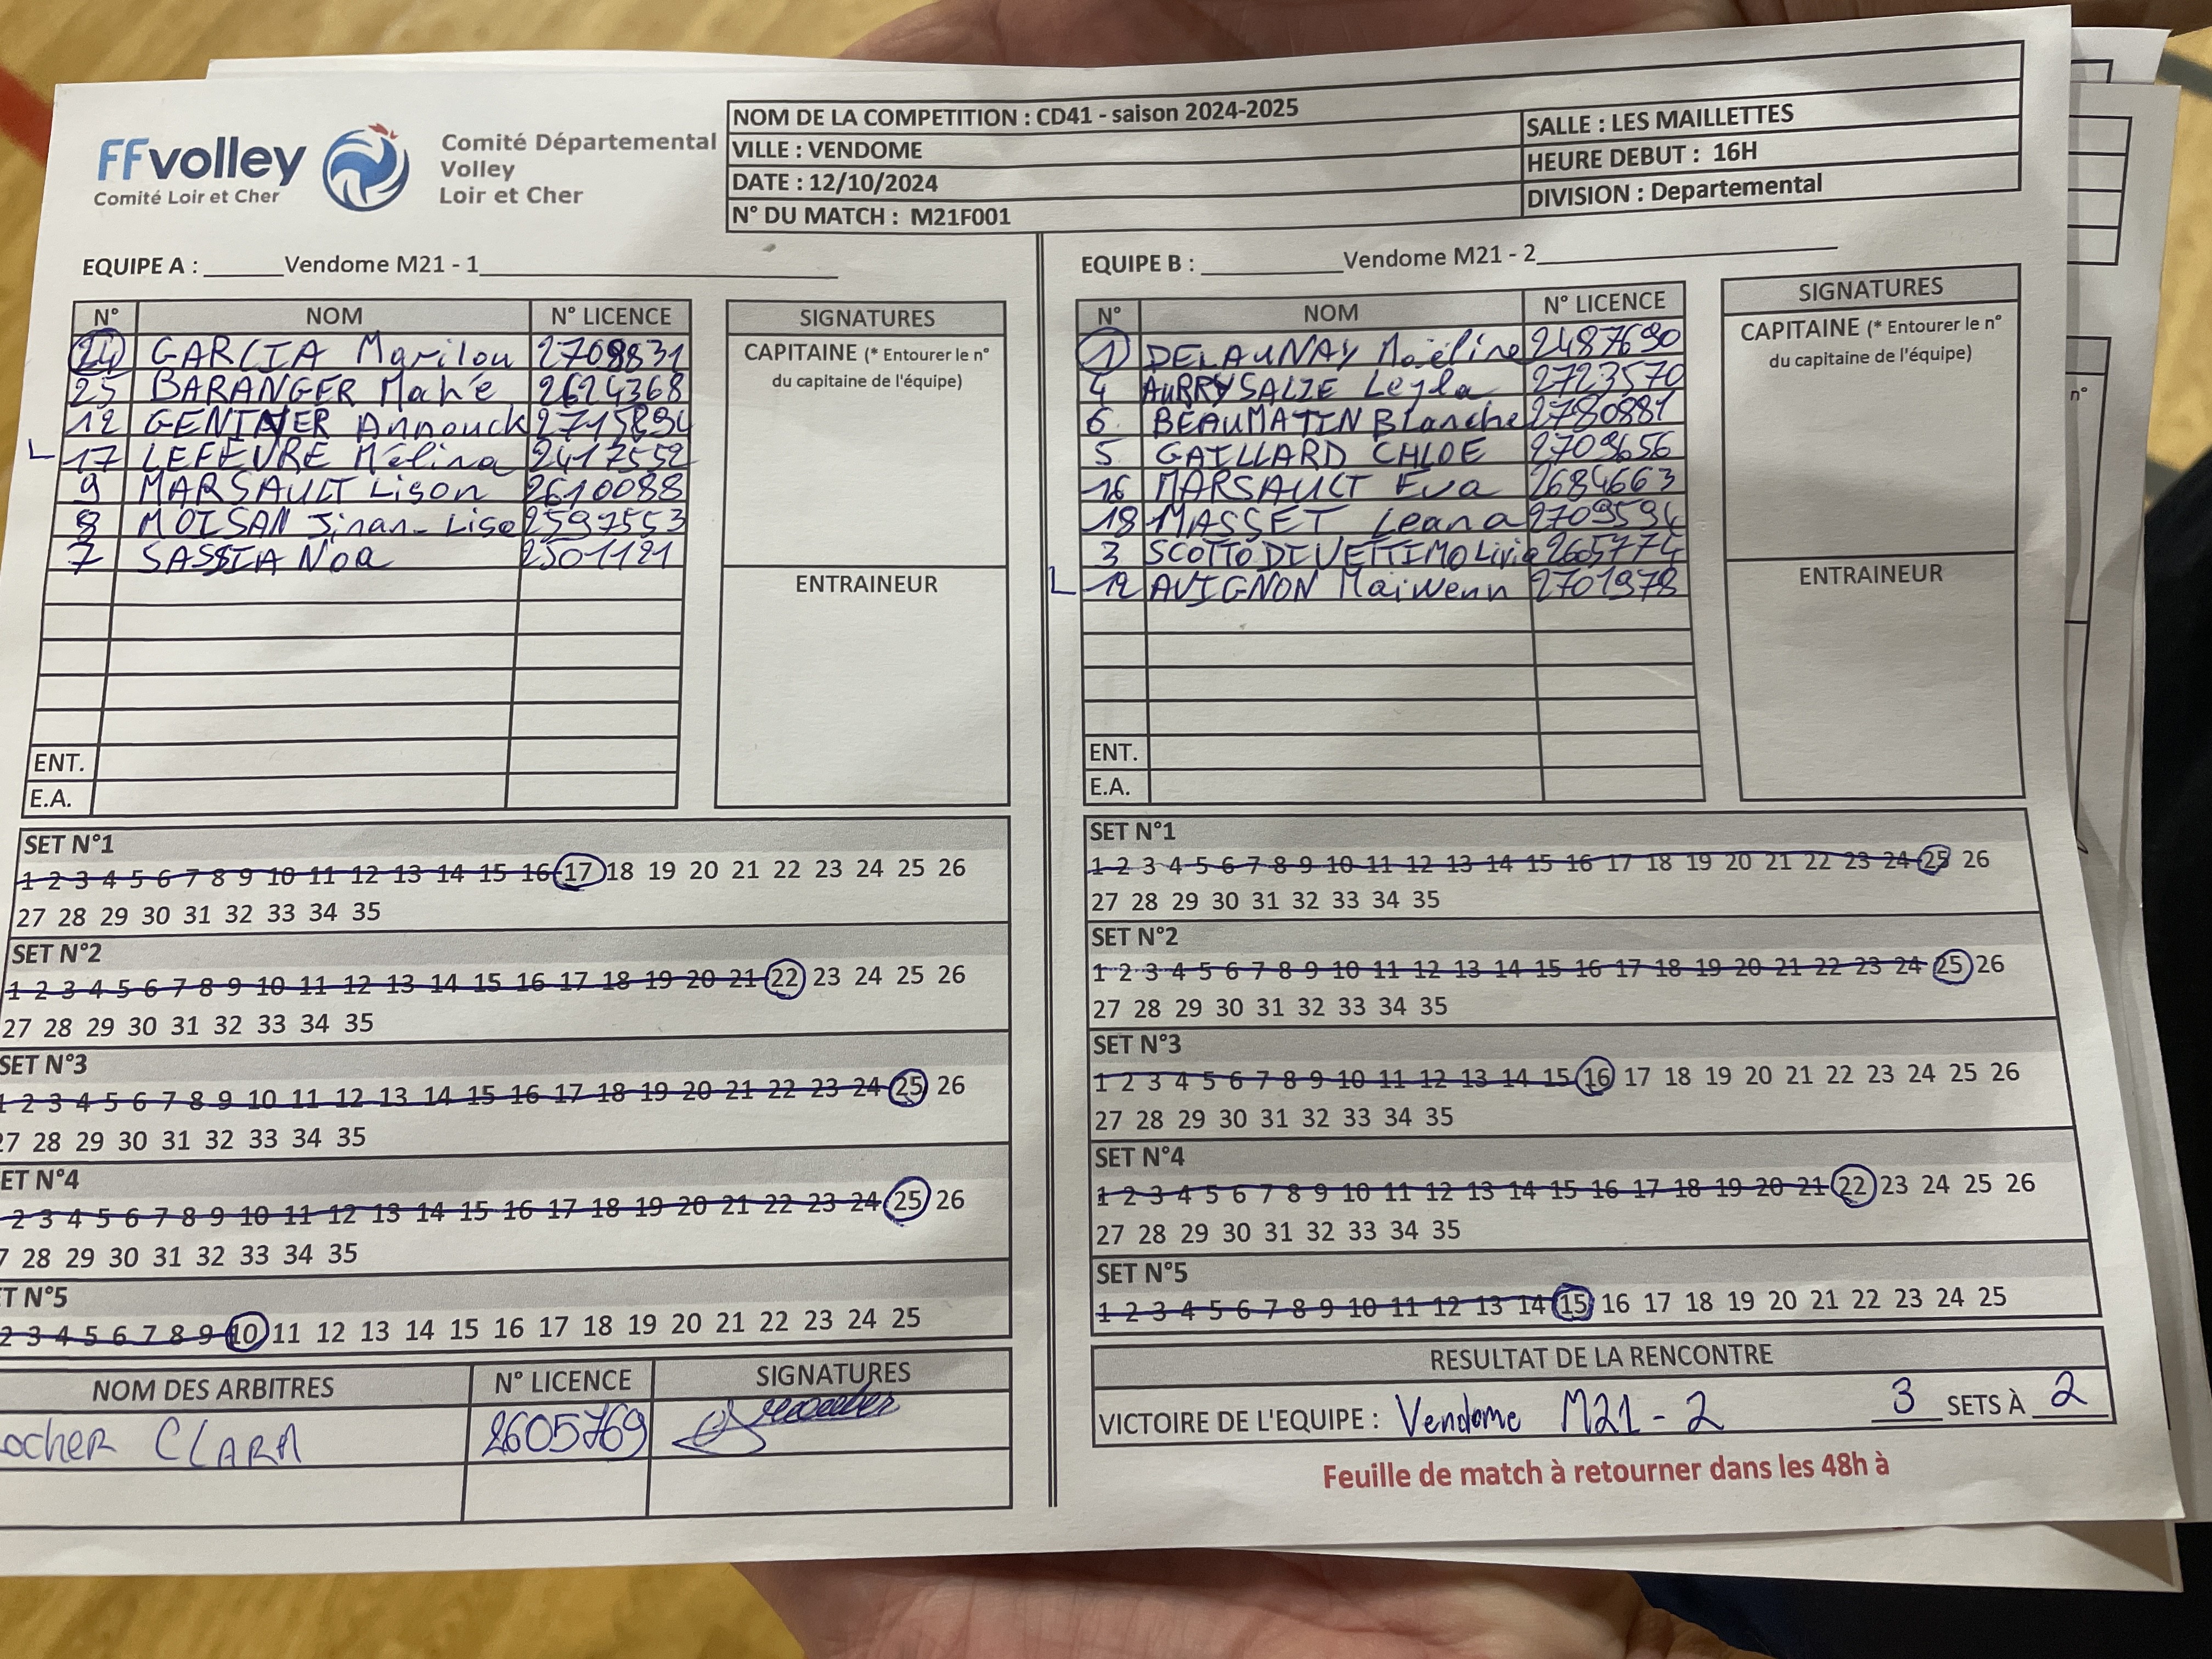 FFvolley
Comité Loir et Cher
Comité Départemental
Volley
Loir et Cher
NOM DE LA COMPETITION : CD41 - saison 2024-2025
VILLE : VENDOME
DATE : 12/10/2024
N° DU MATCH : M21F001
SALLE : LES MAILLETTES
HEURE DEBUT : 16H
DIVISION : Departemental
EQUIPE A : Vendome M21 - 1
N° NOM N° LICENCE
24 GARCIA Marilou 2708831
25 BARANGER Mahé 2624368
12 GENINER Annouck 2715894
L 17 LEFEVRE Mélina 2417552
9 MARSAULT Lison 2610088
8 MOISAN Jinan-Lise 2597553
7 SASSIA Noa 2501121
ENT.
E.A.
SIGNATURES
CAPITAINE (* Entourer le n°
du capitaine de l'équipe)
ENTRAINEUR
EQUIPE B : Vendome M21 - 2
N° NOM N° LICENCE
1 DELAUNAY Maëline 2487690
4 AUBRY SALZE Leyla 2723570
6 BEAUMATIN Blanche 2780881
5 GAILLARD CHLOE 2709656
16 MARSAULT Eva 2684663
18 MASSET Leana 2709594
3 SCOTTO DI VETTIMO Livia 2605774
L 12 AVIGNON Maïwenn 2701978
ENT.
E.A.
SIGNATURES
CAPITAINE (* Entourer le n°
du capitaine de l'équipe)
ENTRAINEUR
n°
SET N°1
1 2 3 4 5 6 7 8 9 10 11 12 13 14 15 16 17 18 19 20 21 22 23 24 25 26
27 28 29 30 31 32 33 34 35
SET N°2
1 2 3 4 5 6 7 8 9 10 11 12 13 14 15 16 17 18 19 20 21 22 23 24 25 26
27 28 29 30 31 32 33 34 35
SET N°3
1 2 3 4 5 6 7 8 9 10 11 12 13 14 15 16 17 18 19 20 21 22 23 24 25 26
27 28 29 30 31 32 33 34 35
ET N°4
2 3 4 5 6 7 8 9 10 11 12 13 14 15 16 17 18 19 20 21 22 23 24 25 26
7 28 29 30 31 32 33 34 35
T N°5
2 3 4 5 6 7 8 9 10 11 12 13 14 15 16 17 18 19 20 21 22 23 24 25
NOM DES ARBITRES N° LICENCE SIGNATURES
ocher CLARA 2605769
SET N°1
1 2 3 4 5 6 7 8 9 10 11 12 13 14 15 16 17 18 19 20 21 22 23 24 25 26
27 28 29 30 31 32 33 34 35
SET N°2
1 2 3 4 5 6 7 8 9 10 11 12 13 14 15 16 17 18 19 20 21 22 23 24 25 26
27 28 29 30 31 32 33 34 35
SET N°3
1 2 3 4 5 6 7 8 9 10 11 12 13 14 15 16 17 18 19 20 21 22 23 24 25 26
27 28 29 30 31 32 33 34 35
SET N°4
1 2 3 4 5 6 7 8 9 10 11 12 13 14 15 16 17 18 19 20 21 22 23 24 25 26
27 28 29 30 31 32 33 34 35
SET N°5
1 2 3 4 5 6 7 8 9 10 11 12 13 14 15 16 17 18 19 20 21 22 23 24 25
RESULTAT DE LA RENCONTRE
VICTOIRE DE L'EQUIPE : Vendome M21 - 2 3 SETS À 2
Feuille de match à retourner dans les 48h à